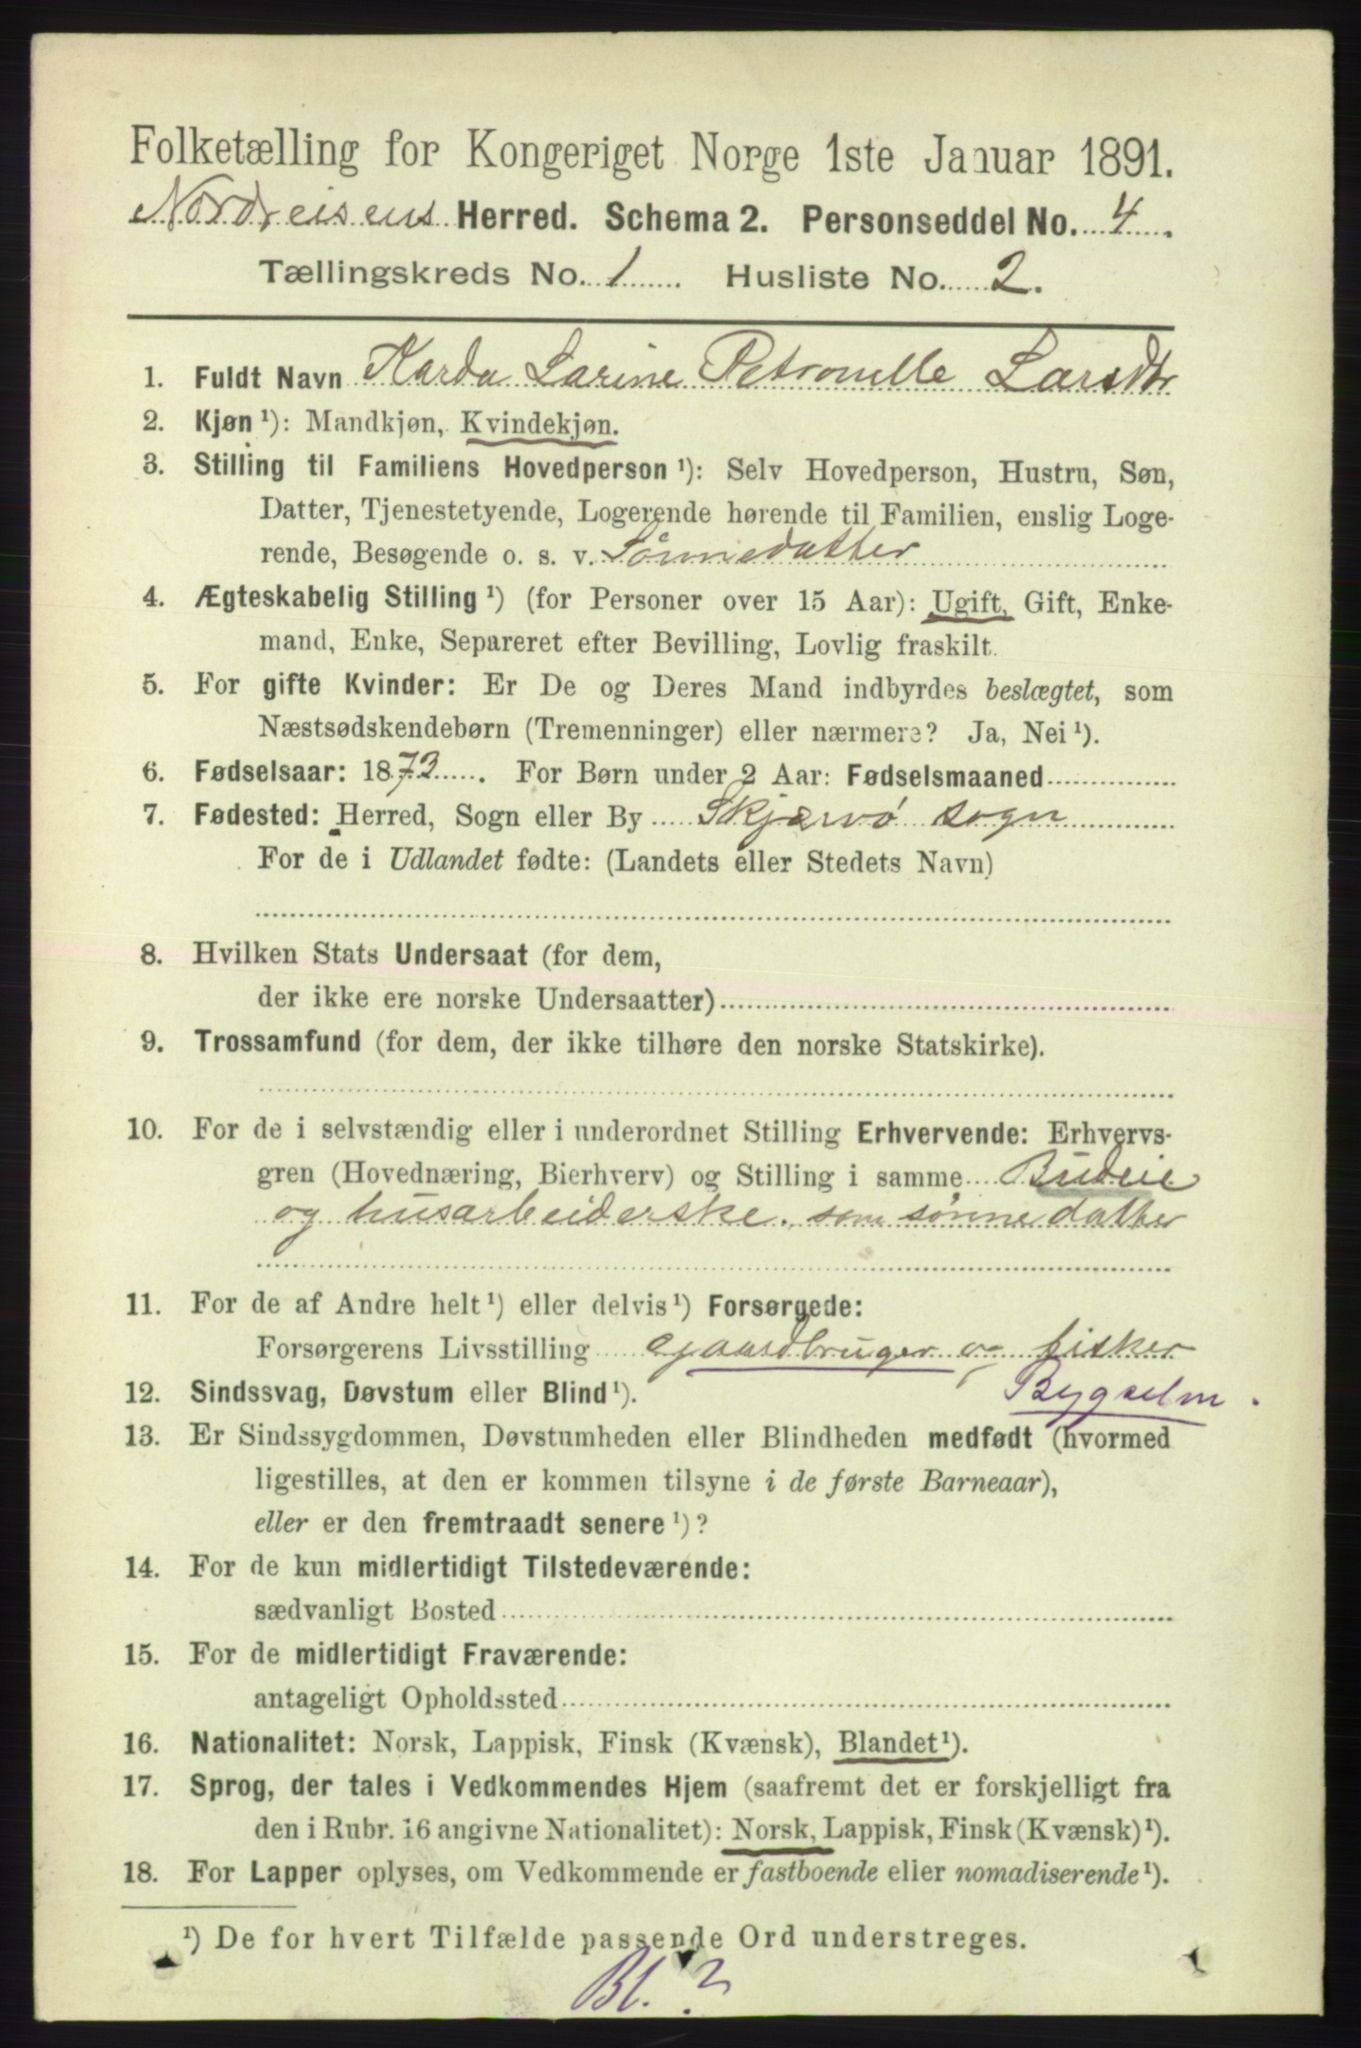 Folketælling for Kongeriget Norge 1ste Januar 1891.
Nordreisens Herred. Schema 2. Personseddel No. 4.
Tællingskreds No. 1 Husliste No. 2.
1. Fuldt Navn Karda Larine Petronelle Larsdtr
2. Kjøn ¹): Mandkjøn, Kvindekjøn.
3. Stilling til Familiens Hovedperson ¹): Selv Hovedperson, Hustru, Søn,
Datter, Tjenestetyende, Logerende hørende til Familien, enslig Loge-
rende, Besøgende o. s. v. Sönnedatter
4. Ægteskabelig Stilling ¹) (for Personer over 15 Aar): Ugift, Gift, Enke-
mand, Enke, Separeret efter Bevilling, Lovlig fraskilt.
5. For gifte Kvinder: Er De og Deres Mand indbyrdes beslægtet, som
Næstsødskendebørn (Tremenninger) eller nærmere? Ja, Nei ¹).
6. Fødselsaar: 1873. For Børn under 2 Aar: Fødselsmaaned
7. Fødested: Herred, Sogn eller By Skjærvö sogn
For de i Udlandet fødte: (Landets eller Stedets Navn)
8. Hvilken Stats Undersaat (for dem,
der ikke ere norske Undersaatter)
9. Trossamfund (for dem, der ikke tilhøre den norske Statskirke).
10. For de i selvstændig eller i underordnet Stilling Erhvervende: Erhvervs-
gren (Hovednæring, Bierhverv) og Stilling i samme Budeie
og husarbeiderske. som sönnedatter
11. For de af Andre helt ¹) eller delvis ¹) Forsørgede:
Forsørgerens Livsstilling gaardbruger og fisker
12. Sindssvag, Døvstum eller Blind ¹). Bygselm.
13. Er Sindssygdommen, Døvstumheden eller Blindheden medfødt (hvormed
ligestilles, at den er kommen tilsyne i de første Barneaar),
eller er den fremtraadt senere ¹)?
14. For de kun midlertidigt Tilstedeværende:
sædvanligt Bosted
15. For de midlertidigt Fraværende:
antageligt Opholdssted
16. Nationalitet: Norsk, Lappisk, Finsk (Kvænsk), Blandet ¹).
17. Sprog, der tales i Vedkommendes Hjem (saafremt det er forskjelligt fra
den i Rubr. 16 angivne Nationalitet): Norsk, Lappisk, Finsk (Kvænsk) ¹).
18. For Lapper oplyses, om Vedkommende er fastboende eller nomadiserende ¹).
¹) De for hvert Tilfælde passende Ord understreges.
Bl. ?